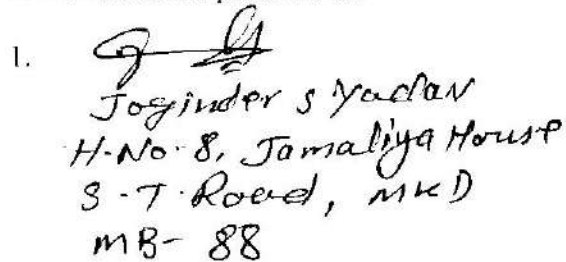 1.
Joginder S Yadav
H-No-8, Jamaliya House
S-T-Road, MKD
MB- 88